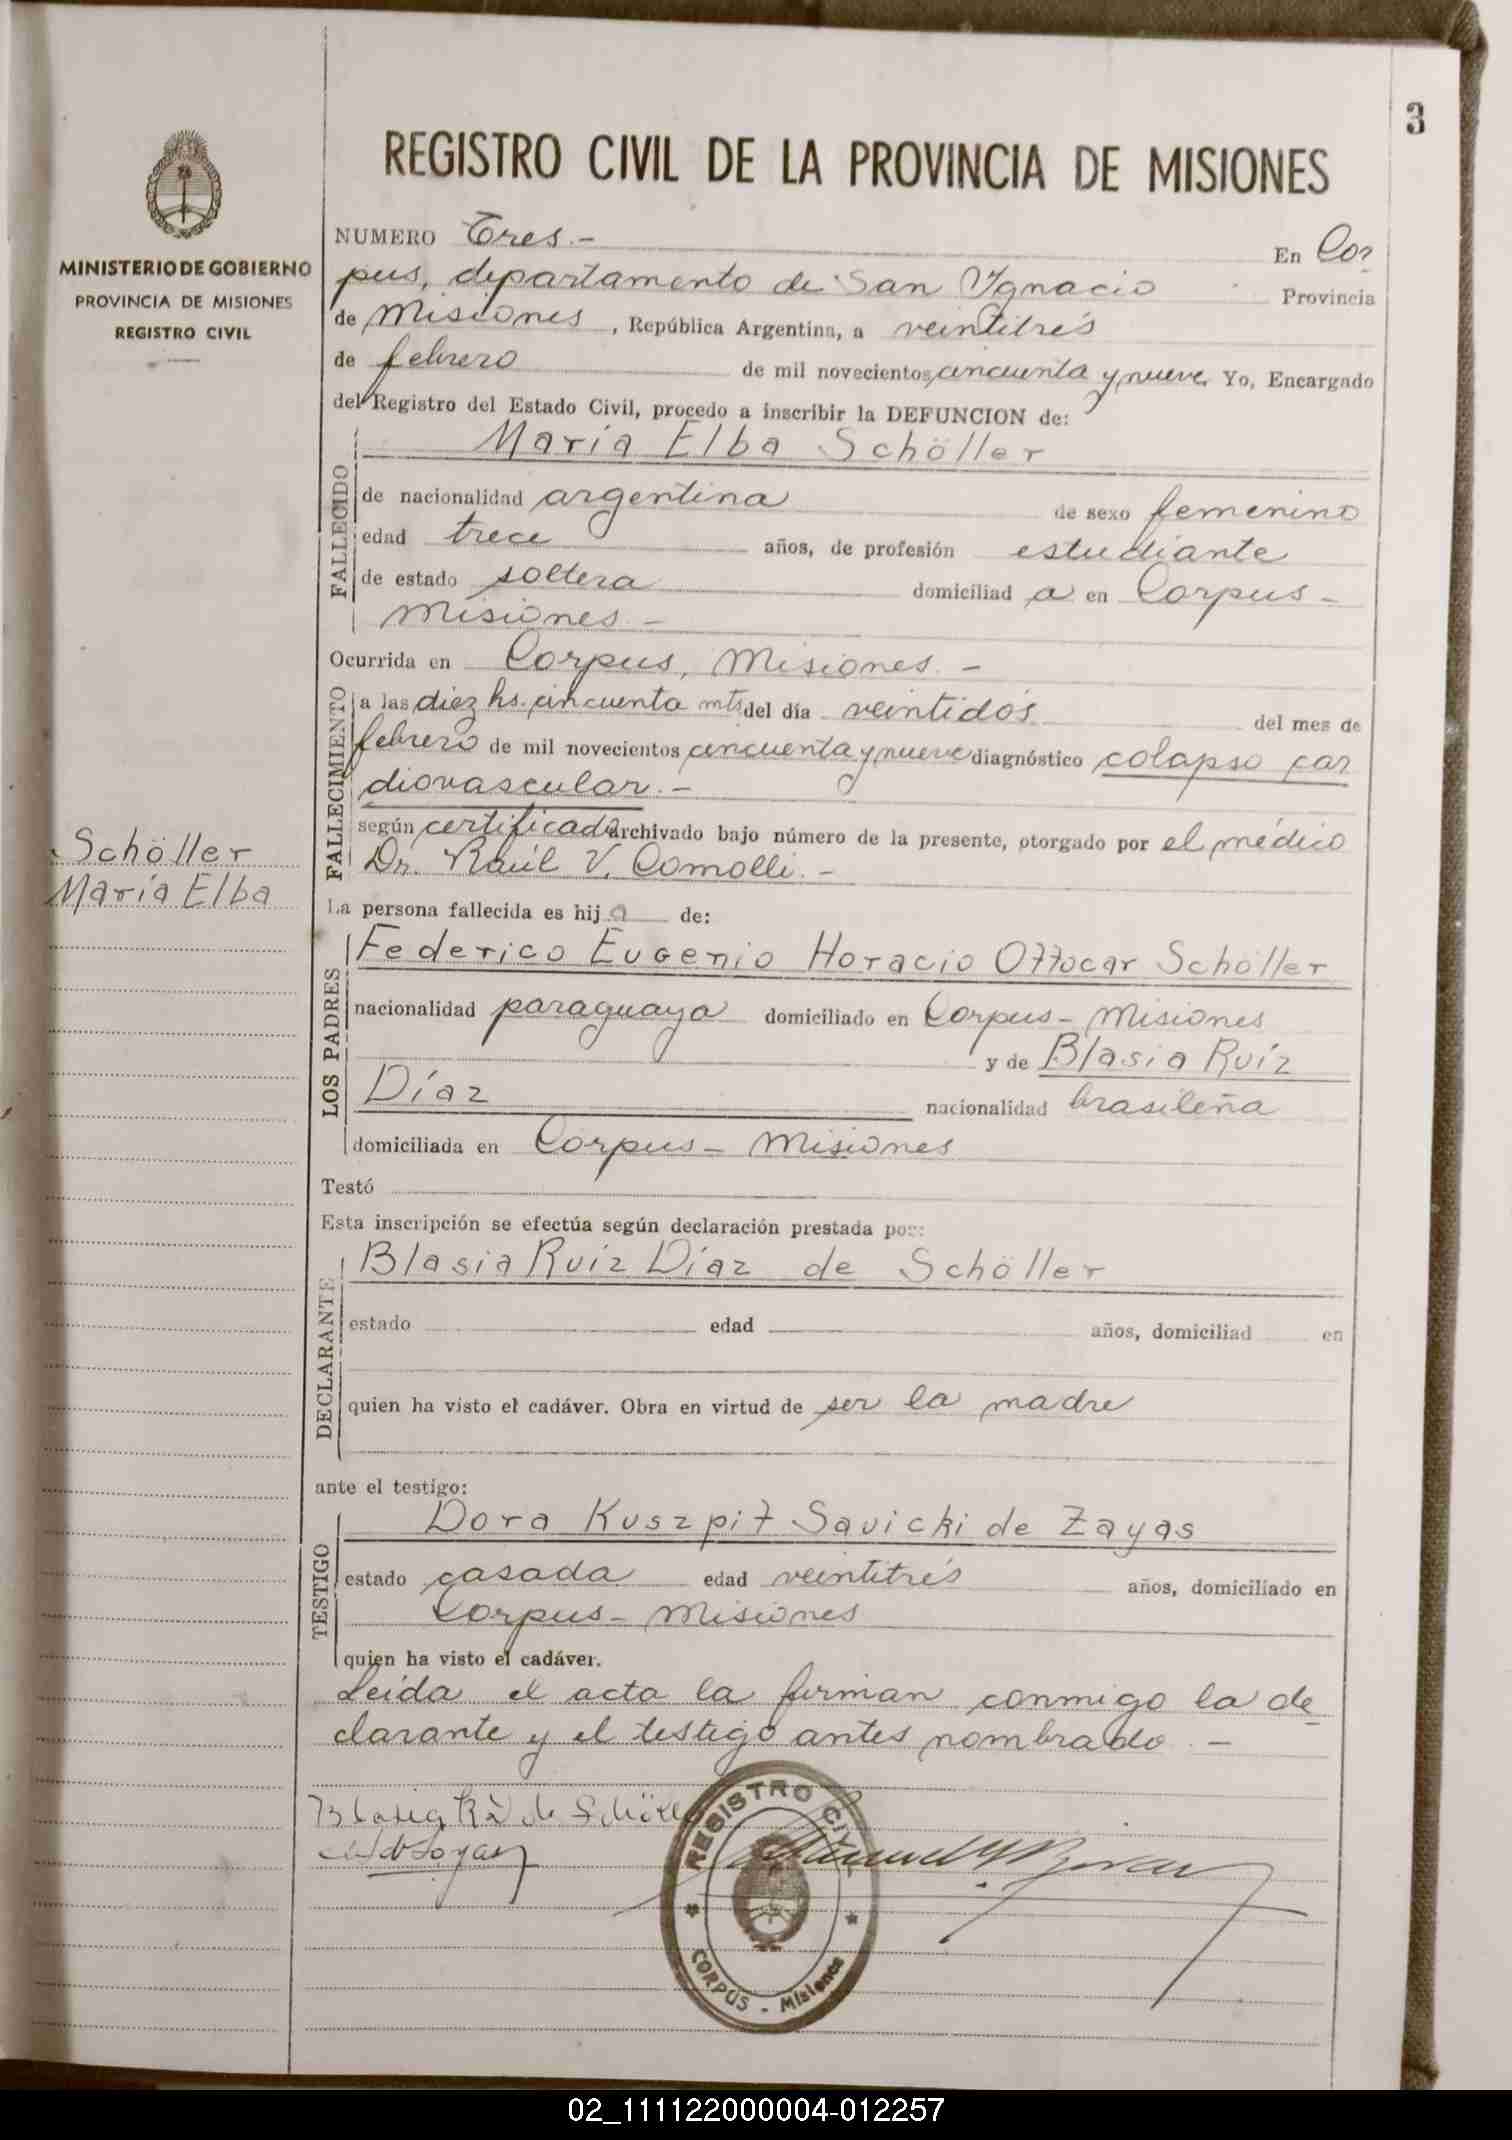 3
REGISTRO CIVIL DE LA PROVINCIA DE MISIONES
MINISTERIO DE GOBIERNO
PROVINCIA DE MISIONES
REGISTRO CIVIL
NUMERO Tres.- En Cor
pus, departamento de San Ygnacio Provincia
de Misiones, República Argentina, a veintitrés
de febrero de mil novecientos cincuenta y nueve Yo, Encargado
del Registro del Estado Civil, procedo a inscribir la DEFUNCION de:
FALLECIDO
María Elba Schöller
de nacionalidad argentina de sexo femenino
edad trece años, de profesión estudiante
de estado soltera domiciliad a en Corpus-
Misiones.-
Ocurrida en Corpus, Misiones.-
FALLECIMIENTO
a las diez hs. cincuenta mts del día veintidós del mes de
febrero de mil novecientos cincuenta y nueve diagnóstico colapso car
diovascular.-
según certificado archivado bajo número de la presente, otorgado por el médico
Dr. Raúl V. Comolli.-
Schöller
María Elba
La persona fallecida es hij a de:
LOS PADRES
Federico Eugenio Horacio Ottocar Schöller
nacionalidad paraguaya domiciliado en Corpus- Misiones
y de Blasia Ruíz
Díaz nacionalidad brasileña
domiciliada en Corpus- Misiones
Testó
Esta inscripción se efectúa según declaración prestada por:
DECLARANTE
Blasia Ruíz Díaz de Schöller
estado edad años, domiciliad en
quien ha visto el cadáver. Obra en virtud de ser la madre
ante el testigo:
TESTIGO
Dora Kuszpit Savicki de Zayas
estado casada edad veintitrés años, domiciliado en
Corpus- Misiones
quien ha visto el cadáver.
Leída el acta la firman conmigo la de
clarante y el testigo antes nombrado.-
Blasia R D de Schöller
REGISTRO CIVIL
CORPUS - Misiones
02_111122000004-012257